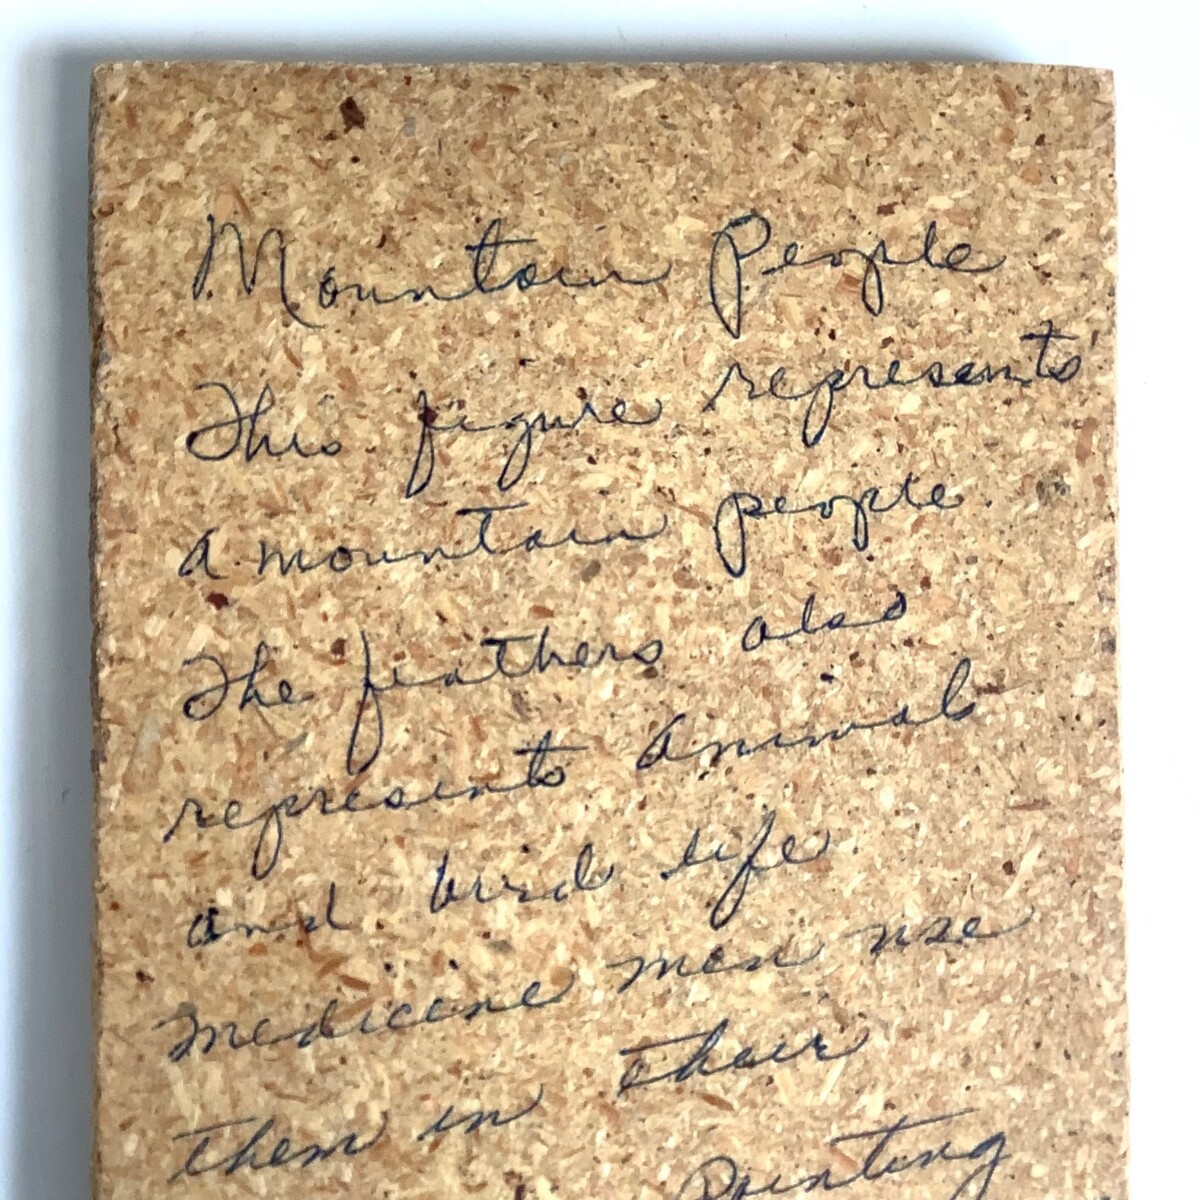 Mountain People
This figure represents
a mountain people.
The feathers also
represents animals
and bird life.
Medicine men use
them in their
Painting